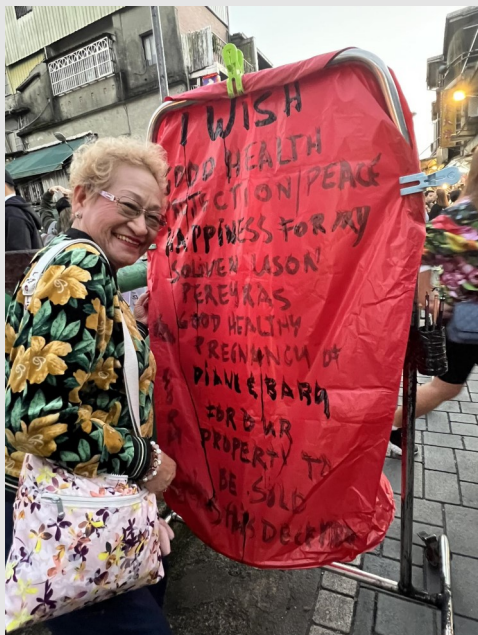 I WISH
GOOD HEALTH
PROTECTION/PEACE
HAPPINESS FOR MY
SOLIVEN UASON
PEREYRAS
GOOD HEALTHY
PREGNANCY OF
DIANE & BARQ
FOR OUR
PROPERTY TO
BE SOLD
THIS DECEMBER